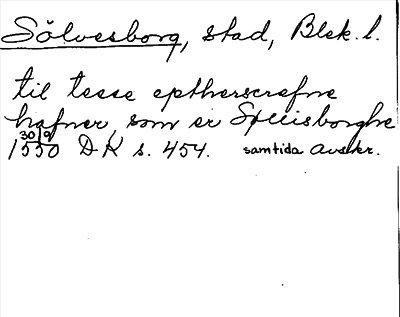 Sölvesborg, stad, Blek. l.
til tesse eptherscrefne
hafner, som er Spllisborghe
30/9
1550 DK s. 454. samtida avskr.